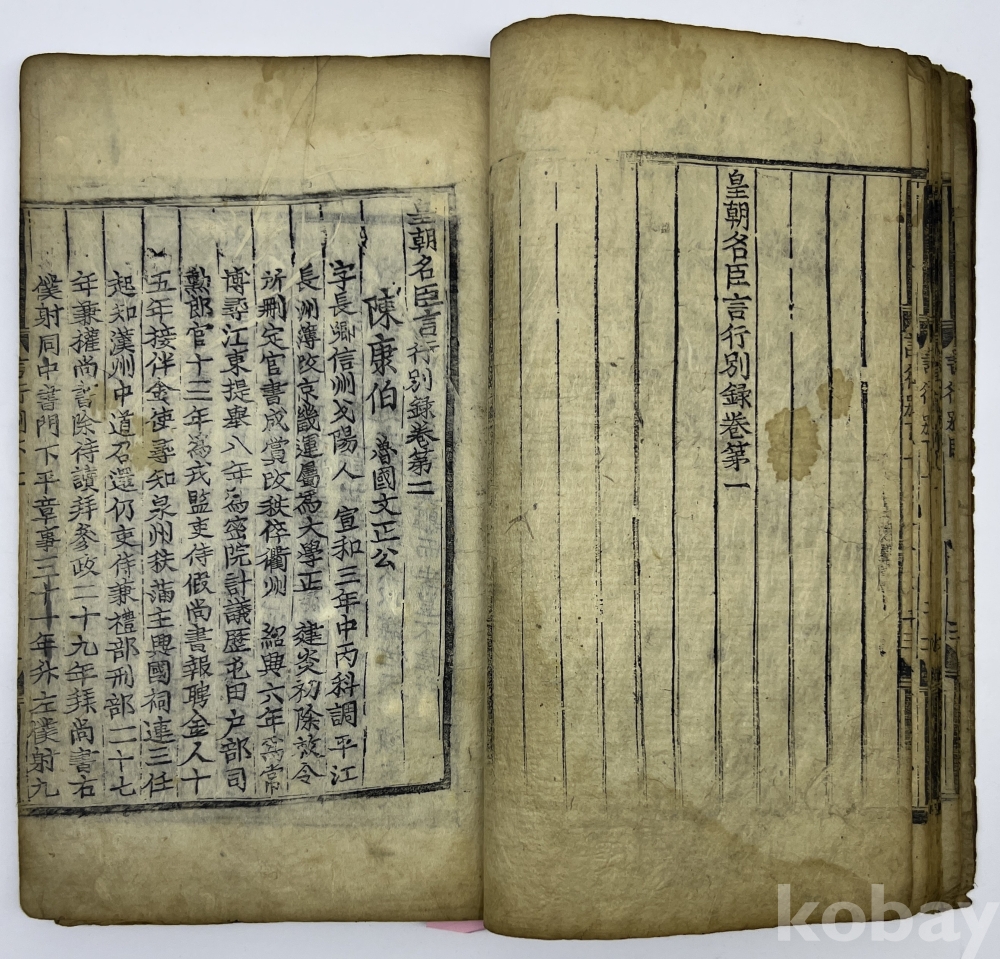 皇朝名臣言行別録卷第一
皇朝名臣言行別録卷第二
陳康伯 魯國文正公
字長卿信州弋陽人 宣和三年中丙科調平江
長州簿改京畿運屬爲大學正 建炎初除敕令
所刪定官書成賞改秩倅衢州 紹興六年爲常
博尋江東提舉八年爲密院計議歷屯田户部司
勲郎官十三年爲戎監吏侍假尚書報聘金人十
五年接伴金使尋知泉州秩滿主興國祠連三任
起知漢州中道召還仍吏侍兼禮部刑部二十七
年兼權尚書除侍讀拜參政二十九年拜尚書右
僕射同中書門下平章事三十年升左僕射九
kobay